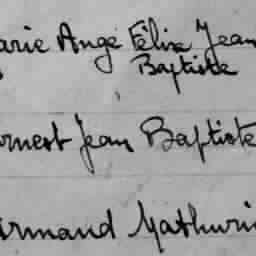 arie Ange Félix Jean
Baptiste
rnest Jean Baptiste
rmand Mathuri